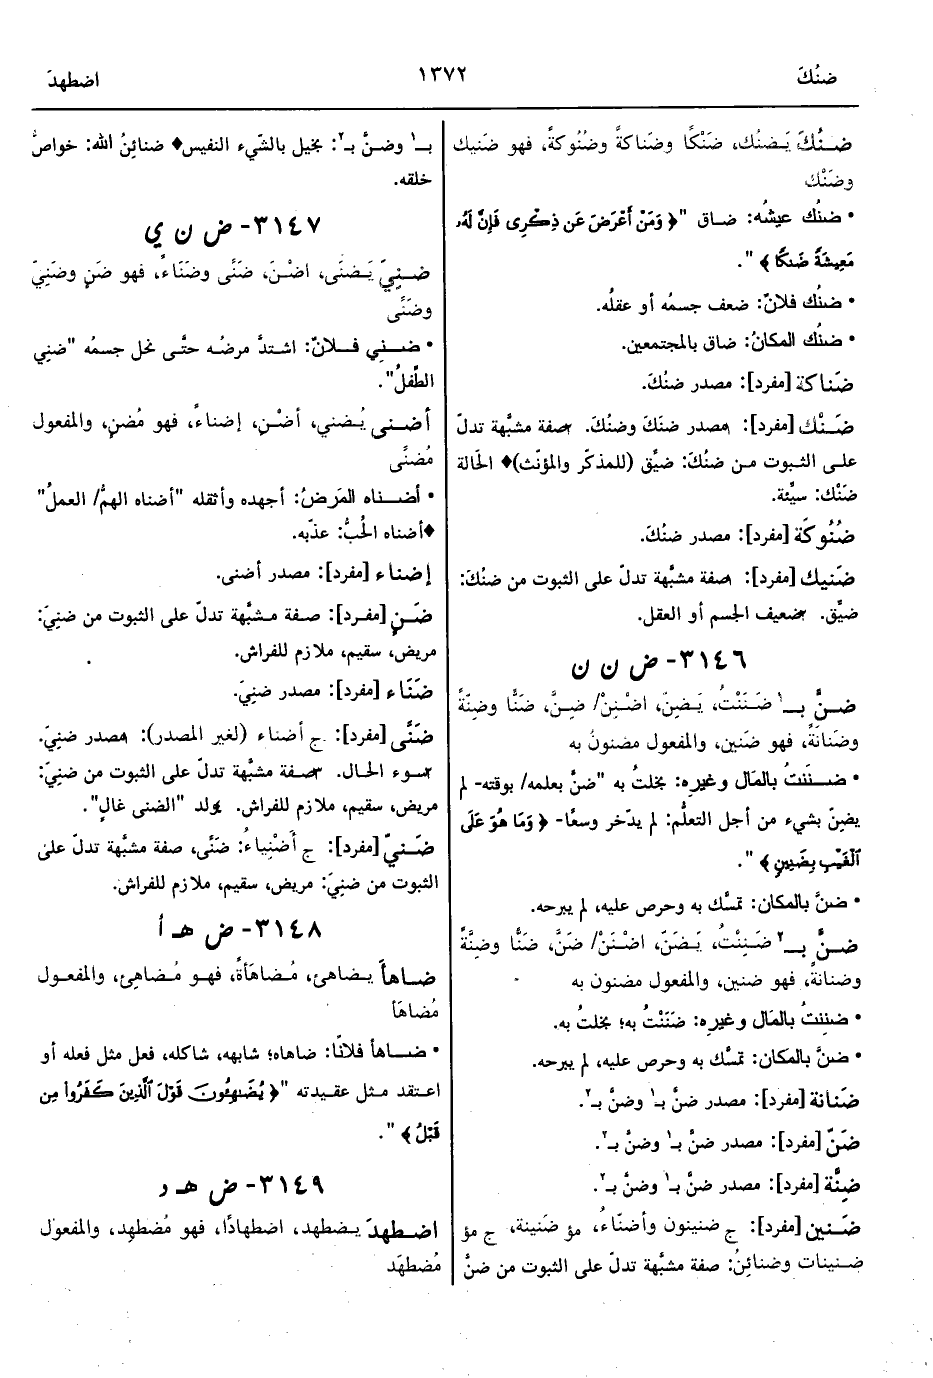 ضنُكَ
١٣٧٢
اضطهدَ
ضَنُكَ يَضنُك، ضَنْكًا وضَناكةً وضُنُوكةً، فهو ضَنيك
وضَنْك
• ضنُك عيشُه: ضاق "﴿ وَمَنْ أَعْرَضَ عَن ذِكْرِى فَإِنَّ لَهُۥ
مَعِيشَةً ضَنكًا ﴾ ".
• ضنُك فلانٌ: ضعف جسمُه أو عقلُه.
• ضنُك المكانُ: ضاق بالمجتمعين.
ضَناكة [مفرد]: مصدر ضنُكَ.
ضَنْك [مفرد]: ١مصدر ضنَكَ وضنُكَ. ٢صفة مشبَّهة تدلّ
على الثبوت من ضنُكَ: ضيِّق (للمذكّر والمؤنّث)♦ الحالة
ضَنْك: سيِّئة.
ضُنُوكَة [مفرد]: مصدر ضنُكَ.
ضَنيك [مفرد]: ١صفة مشبَّهة تدلّ على الثبوت من ضنُكَ:
ضيِّق. ٢ضعيف الجسم أو العقل.
٣١٤٦- ض ن ن
ضَنَّ بـ١ ضَنَنْتُ، يَضِنّ، اضْنِنْ/ ضِنَّ، ضَنًّا وضِنّةً
وضَنانةً، فهو ضَنين، والمفعول مضنونٌ به
• ضَنَنتُ بالمال وغيرِه: بخلتُ به "ضنَّ بعلمه/ بوقته- لم
يضِنّ بشيء من أجل التعلُّم: لم يدّخر وسعًا- ﴿ وَمَا هُوَ عَلَى
ٱلْغَيْبِ بِضَنِينٍ ﴾ ".
• ضنَّ بالمكان: تمسَّك به وحرص عليه، لم يبرحه.
ضَنَّ بـ٢ ضَنِنْتُ، يَضَنّ، اضْنَنْ/ ضَنَّ، ضَنًّا وضِنَّةً
وضنانة، فهو ضنين، والمفعول مضنون به
• ضنِنتُ بالمال وغيره: ضنَنْتُ به؛ بخلتُ به.
• ضنَّ بالمكان: تمسَّك به وحرص عليه، لم يبرحه.
ضَنانة [مفرد]: مصدر ضنَّ بـ١ وضنَّ بـ٢.
ضَنّ [مفرد]: مصدر ضنَّ بـ١ وضنَّ بـ٢.
ضِنَّة [مفرد]: مصدر ضنَّ بـ١ وضنَّ بـ٢.
ضَنين [مفرد]: ج ضنينون وأضنّاءُ، مؤ ضَنينة، ج مؤ
ضنينات وضنائنُ: صفة مشبَّهة تدلّ على الثبوت من ضنَّ
بـ١ وضنَّ بـ٢: بخيل بالشّيء النفيس♦ ضنائنُ الله: خواصُّ
خلقه.
٣١٤٧- ض ن ي
ضَنِيَ يَضنَى، اضْنَ، ضَنًى وضَنَاءً، فهو ضَنٍ وضَنِيّ
وضَنًى
• ضَنِي فلانٌ: اشتدَّ مرضُه حتَّى نحل جسمُه "ضنِي
الطِّفلُ".
أضنى يُضني، أضْنِ، إضناءً، فهو مُضنٍ، والمفعول
مُضنًى
• أضناه المَرضُ: أجهده وأثقله "أضناه الهمُّ/ العملُ"
♦أضناه الحُبُّ: عذّبه.
إضناء [مفرد]: مصدر أضنى.
ضَنٍ [مفرد]: صفة مشبَّهة تدلّ على الثبوت من ضنِيَ:
مريض، سقيم، ملازم للفراش.
ضَنَاء [مفرد]: مصدر ضنِيَ.
ضَنًى [مفرد]: ج أضناء (لغير المصدر): ١مصدر ضنِيَ.
٢سوء الحال. ٣صفة مشبَّهة تدلّ على الثبوت من ضنِيَ:
مريض، سقيم، ملازم للفراش. ٤ولد "الضنى غالٍ".
ضَنيّ [مفرد]: ج أَضْنِياءُ: ضَنًى، صفة مشبَّهة تدلّ على
الثبوت من ضنِيَ: مريض، سقيم، ملازم للفراش.
٣١٤٨- ض هـ أ
ضاهأَ يضاهئ، مُضاهَأةً، فهو مُضاهِئ، والمفعول
مُضاهَأ
• ضاهأ فلانًا: ضاهاه؛ شابهه، شاكله، فعل مثل فعله أو
اعتقد مثل عقيدته "﴿ يُضَٰهِـُٔونَ قَوْلَ ٱلَّذِينَ كَفَرُوا۟ مِن
قَبْلُ ﴾ ".
٣١٤٩- ض هـ د
اضطهدَ يضطهد، اضطهادًا، فهو مُضطهِد، والمفعول
مُضطهَد